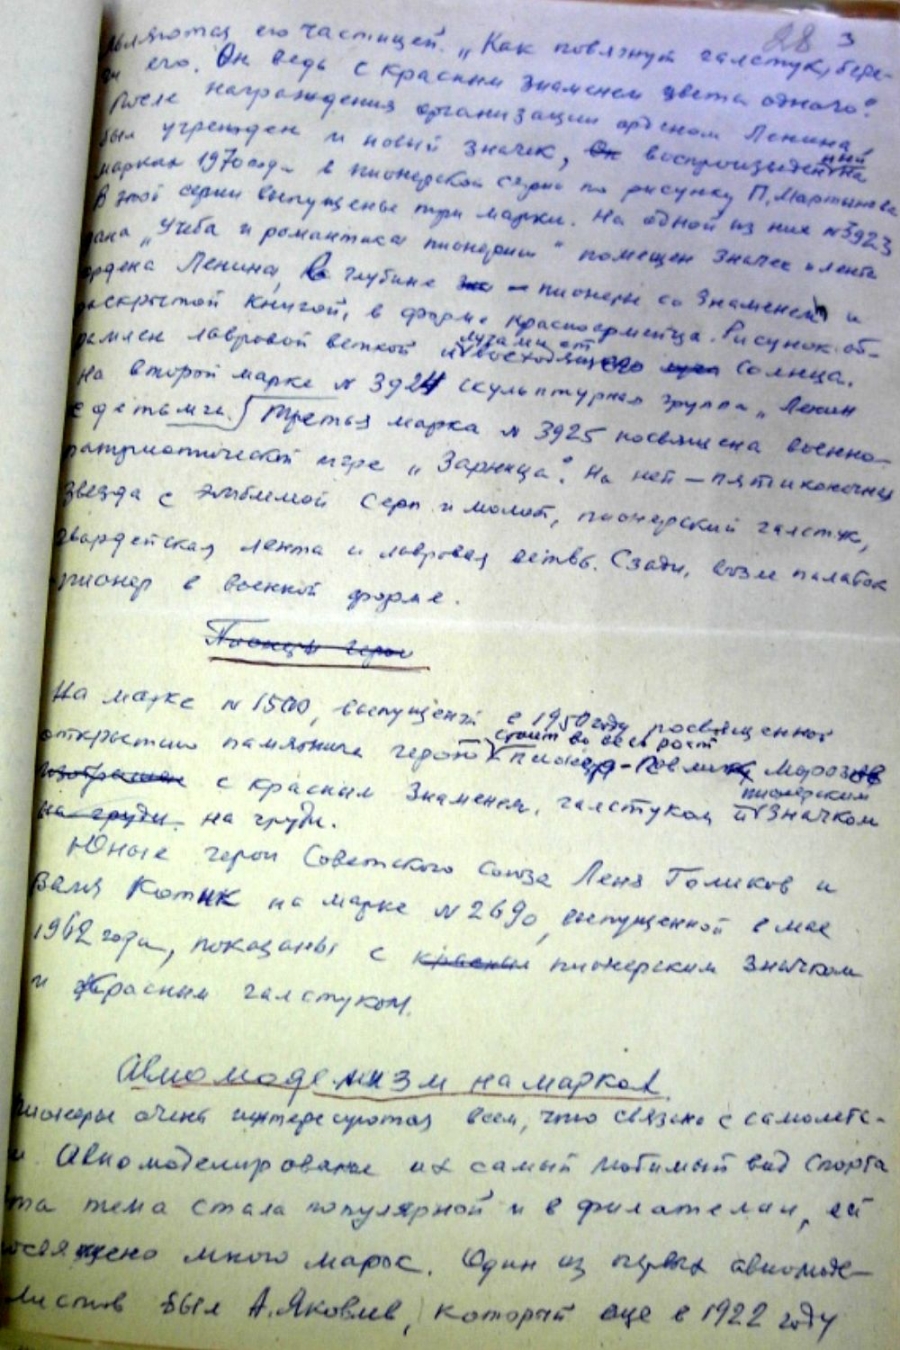 28 3
являются его частицей. „Как повяжут галстук, бере-
ги его. Он ведь с красным знаменем цвета одного".
После награждения организации орденом Ленина
был учрежден и новый значек, Он воспроизведенный
марках 1970 года в пионерской серии по рисунку П. Мартынова
В этой серии выпущены три марки. На одной из них №3923
дана „Учеба и романтика пионерии" помещен значек и лента
ордена Ленина, в глубине – пионеры со знаменем и
раскрытой книгой, в форме красноармейца. Рисунок об-
рамлен лавровой веткой и лучами восходящего солнца.
На второй марке № 3924 скульптурная группа „Ленин
с детьми. Третья марка № 3925 посвящена военно-
патриотической игре „Зарница". На ней – пятиконечная
звезда с эмблемой Серп и молот, пионерский галстук,
гвардейская лента и лавровая ветвь. Сзади, возле палаток
пионер в военной форме.
Пионеры герои
На марке № 1500, выпущенной в 1950 году посвященной
открытию памятника герою стоит во весь рост пионер-Павлик Морозов
изображен с красным знаменем, галстуком и пионерским значком
на груди. на груди.
Юные герои Советского Союза Леня Голиков и
Валя Котик на марке № 2690, выпущенной в мае
1962 года, показаны с красным пионерским значком
и красным галстуком.
Авиомоделизм на марках.
Пионеры очень интересуются всем, что связано с самолета-
ми. Авиомоделирование их самый любимый вид спорта
Эта тема стала популярной и в филателии, ей
посвящено много марок. Один из первых авиомоде-
листов был А. Яковлев, который еще в 1922 году